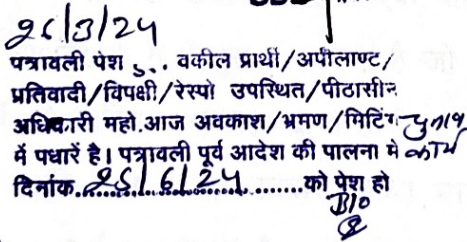 26/3/24
पत्रावली पेश ... वकील प्रार्थी/अपीलाण्ट/
प्रतिवादी/विपक्षी/रेस्पो उपस्थित/पीठासीन
अधिकारी महो.आज अवकाश/भ्रमण/मिटिंग चुनाव
में पधारें है। पत्रावली पूर्व आदेश की पालना मे कार्य
दिनांक..25/6/24.........को पेश हो